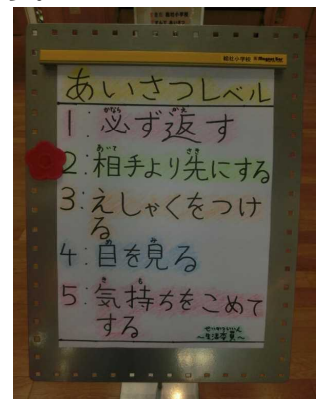 あいさつレベル
1:必ず返す
2:相手より先にする
3:えしゃくをつけ
る
4:目を見る
5:気持ちをこめて
する
～生活委員～